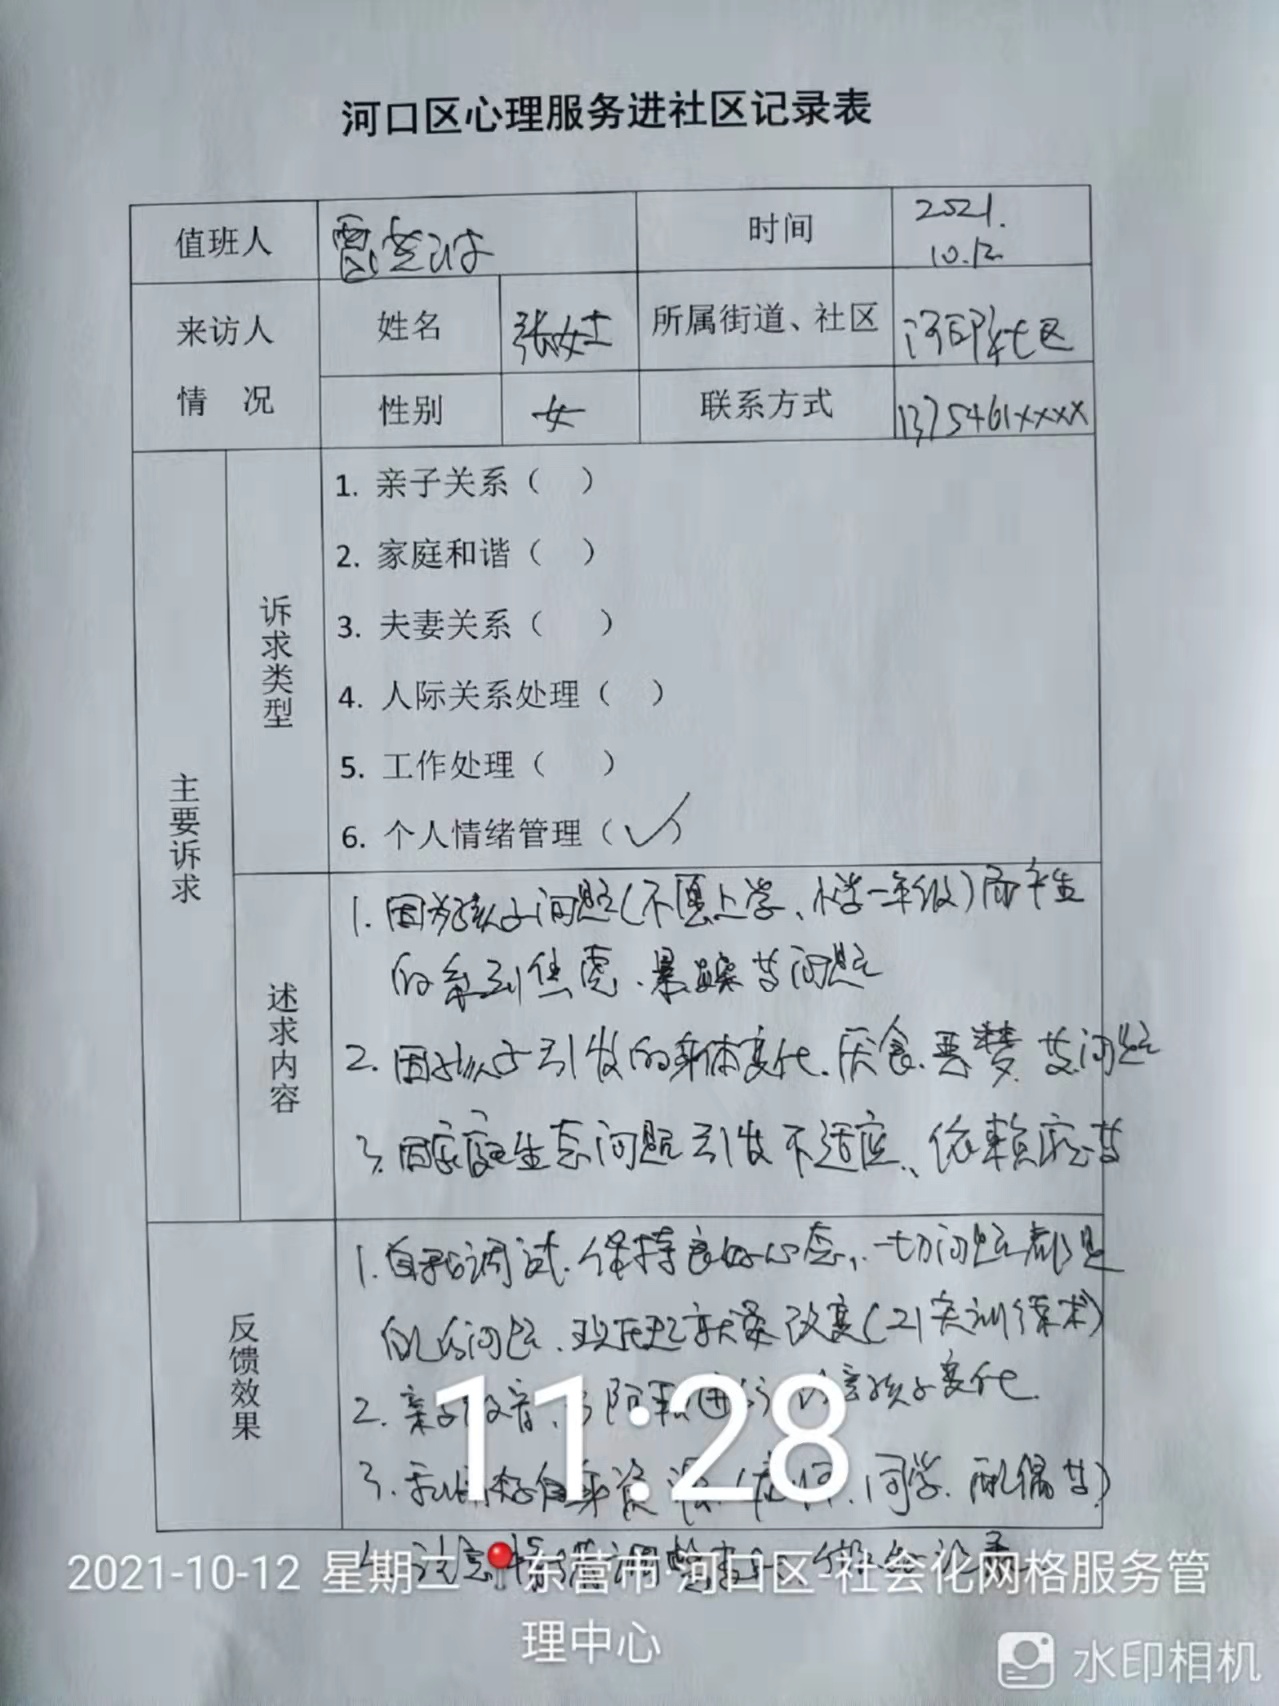 河口区心理服务进社区记录表
值班人 时间 2021.
10.12
来访人 姓名 张女士 所属街道、社区 社区
情 况 性别 女 联系方式 1375461xxxx
主要诉求
诉求类型
1. 亲子关系（ ）
2. 家庭和谐（ ）
3. 夫妻关系（ ）
4. 人际关系处理（ ）
5. 工作处理（ ）
6. 个人情绪管理（✓）
述求内容
1. 因为孩子问题(不愿上学、小学一年级)而产生
的系列焦虑、暴躁等问题
2. 因孩子引发的身体变化、厌食、恶梦等问题
3. 因家庭生态问题引发不适应、依赖症等
反馈效果
1. 自我调试、保持良好心态、一切问题都是
的问题、现在起就要改变(21天训练术)
2. 亲子 孩子变化
3. 利用好自身资源( 、同学、配偶等)
4. 注意情绪调整
11:28
2021-10-12 星期二 东营市·河口区-社会化网格服务管
理中心
水印相机